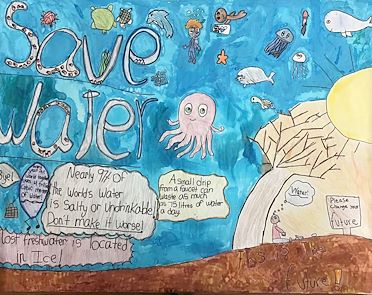 Save
Water
Bye!
Nearly 97% of
the World's Water
is Salty or undrinkable
Don't make it worse!
A small drip
from a faucet can
waste as much
as 75 litres of water
a day.
Most freshwater is located
in Ice!
Water!
Please
change your
future
This is the
future!!